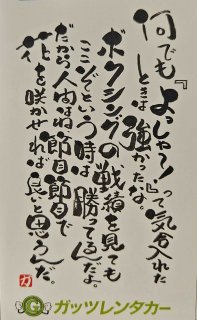 何でも『よっしゃ～！』って気合入れた
ときは強かったな。
ボクシングの戦績を見ても
ここぞという時は勝ってるんだよ。
だから人間はね、節目節目で
花を咲かせれば良いと思うんだ。
ガ
G ガッツレンタカー